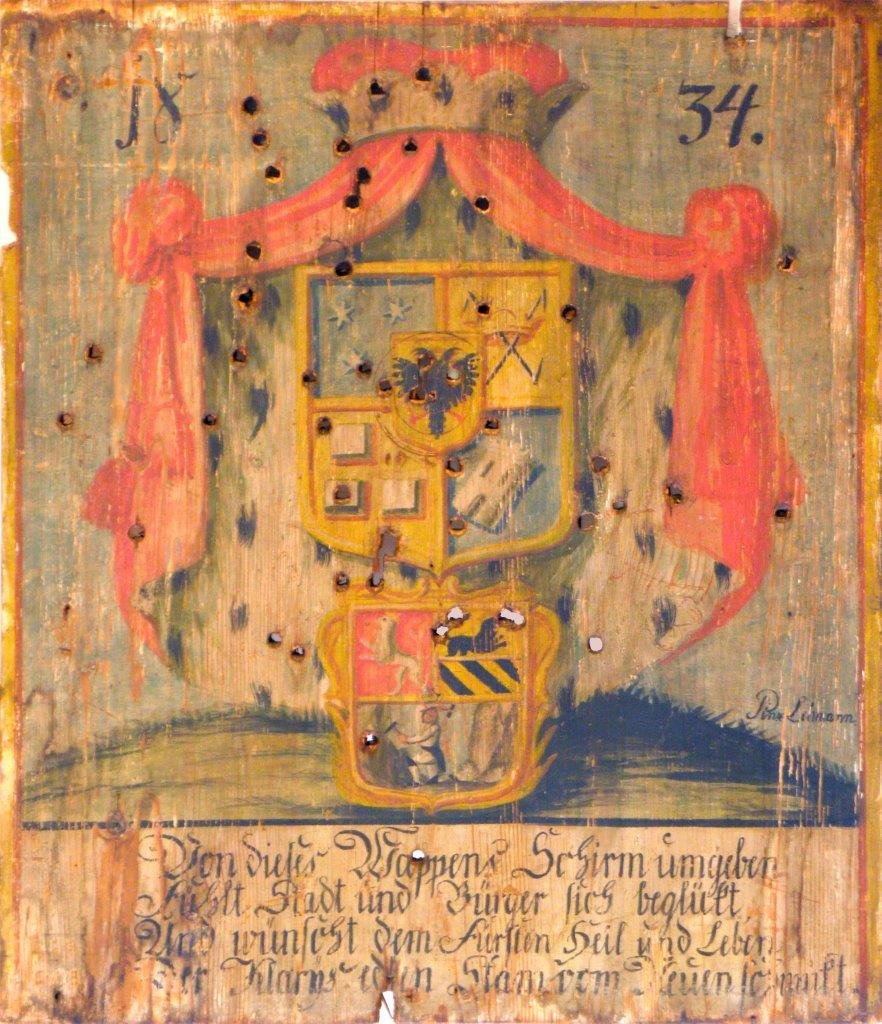 18 34.
Pinx Leimann
Von dieses Wappens Schirm umgeben
Fühlt Stadt und Bürger sich beglükt,
Und wünscht dem Fürsten Heil und Leben
Der Stam vom Neuen schmükt.